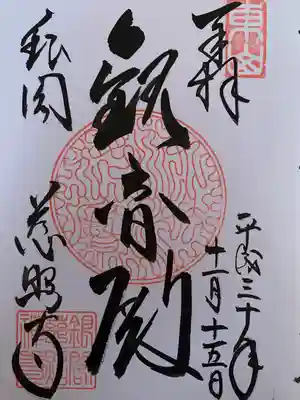 奉拝
平成三十年
十一月十五日
觀音殿
銀閣
慈照寺